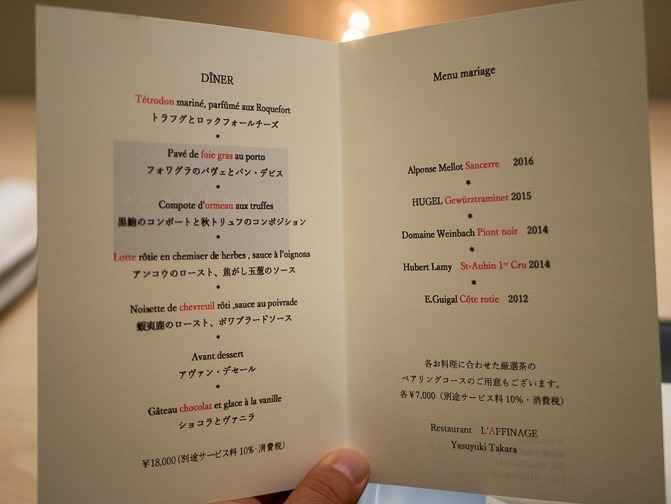 DÎNER
Tétrodon mariné, parfûmé aux Roquefort
トラフグとロックフォールチーズ
*
Pavé de foie gras au porto
フォワグラのパヴェとパン・デピス
*
Compote d'ormeau aux truffes
黒鮑のコンポートと秋トリュフのコンポジション
*
Lotte rôtie en chemiser de herbes , sauce à l'oignons
アンコウのロースト、焦がし玉葱のソース
*
Noisette de chevreuil rôti ,sauce au poivrade
蝦夷鹿のロースト、ポワブラードソース
*
Avant dessert
アヴァン・デセール
*
Gâteau chocolat et glace à la vanille
ショコラとヴァニラ
¥18,000 (別途サービス料 10%・消費税)
Menu mariage
Alponse Mellot Sancerre 2016
*
HUGEL Gewürztraminer 2015
*
Domaine Weinbach Piont noir 2014
*
Hubert Lamy St-Aubin 1er Cru 2014
*
E.Guigal Côte rotie 2012
各お料理に合わせた厳選茶の
ペアリングコースのご用意もございます。
各¥7,000 (別途サービス料 10%・消費税)
Restaurant L'AFFINAGE
Yasuyuki Takara